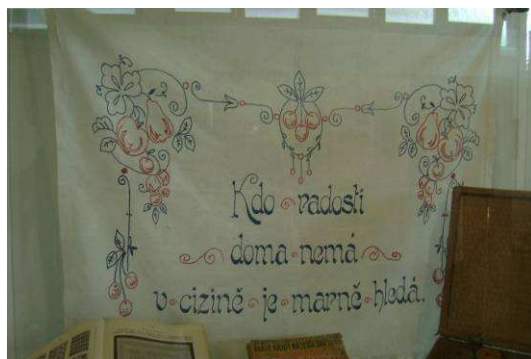 Kdo radosti
doma nemá
v cizině je marně hledá.